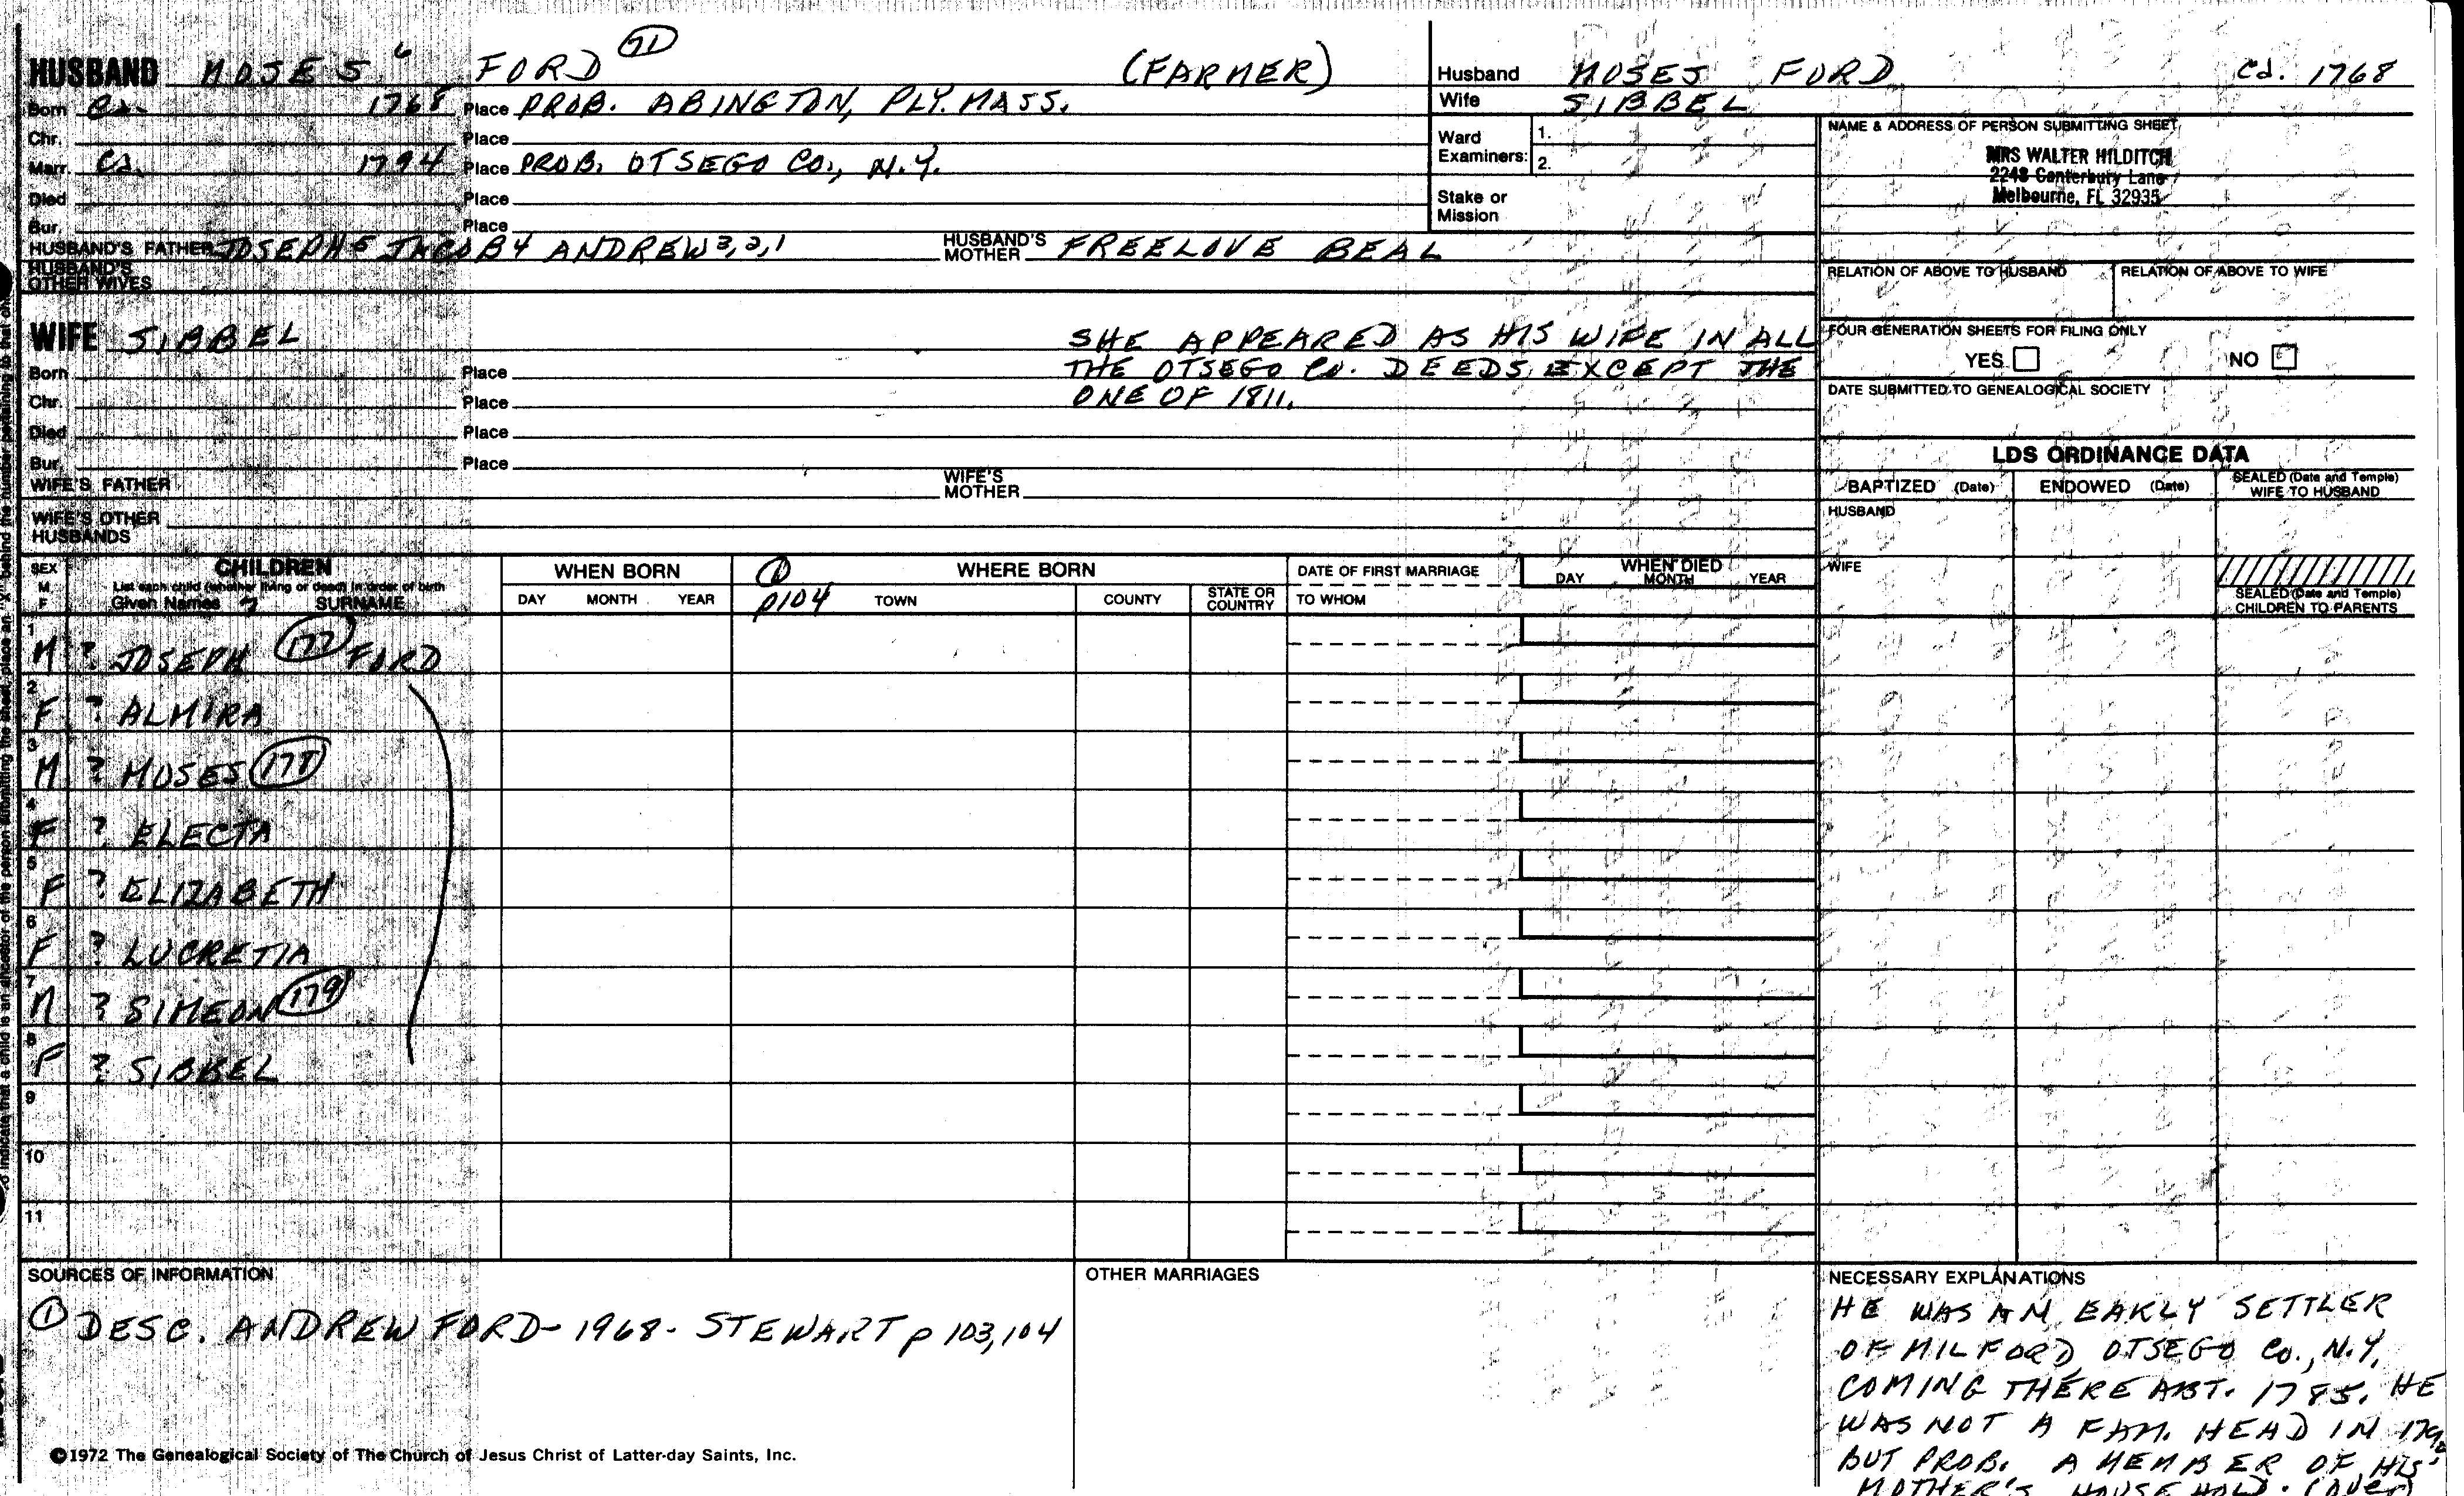 HUSBAND MOSES 6 FORD 71 (FARMER)
Born Ca. 1768 Place PROB. ABINGTON, PLY. MASS.
Chr. Place
Marr. Ca. 1794 Place PROB. OTSEGO CO., N.Y.
Died Place
Bur. Place
HUSBAND'S FATHER JOSEPH 5 JACOB 4 ANDREW 3,2,1 HUSBAND'S MOTHER FREELOVE BEAL
HUSBAND'S OTHER WIVES
Husband MOSES FORD Ca. 1768
Wife SIBBEL
Ward Examiners: 1. 2.
Stake or Mission
NAME & ADDRESS OF PERSON SUBMITTING SHEET
MRS WALTER HILDITCH
2248 Canterbury Lane
Melbourne, FL 32935
RELATION OF ABOVE TO HUSBAND RELATION OF ABOVE TO WIFE
FOUR GENERATION SHEETS FOR FILING ONLY
YES NO
DATE SUBMITTED TO GENEALOGICAL SOCIETY
WIFE SIBBEL SHE APPEARED AS HIS WIFE IN ALL
THE OTSEGO CO. DEEDS EXCEPT THE
ONE OF 1811.
Born Place
Chr. Place
Died Place
Bur. Place
WIFE'S FATHER WIFE'S MOTHER
WIFE'S OTHER HUSBANDS
LDS ORDINANCE DATA
BAPTIZED (Date) ENDOWED (Date) SEALED (Date and Temple) WIFE TO HUSBAND
HUSBAND
WIFE
SEALED (Date and Temple) CHILDREN TO PARENTS
SEX M F CHILDREN WHEN BORN 1 WHERE BORN DATE OF FIRST MARRIAGE WHEN DIED
List each child (whether living or dead) in order of birth
Given Names ? SURNAME DAY MONTH YEAR p104 TOWN COUNTY STATE OR COUNTRY TO WHOM DAY MONTH YEAR
1 M ? JOSEPH 177 FORD
2 F ? ALMIRA
3 M ? MOSES 178
4 F ? ELECTA
5 F ? ELIZABETH
6 F ? LUCRETIA
7 M ? SIMEON 179
8 F ? SIBBEL
9
10
11
SOURCES OF INFORMATION
1 DESC. ANDREW FORD - 1968 - STEWART p 103,104
OTHER MARRIAGES
NECESSARY EXPLANATIONS
HE WAS AN EARLY SETTLER
OF MILFORD OTSEGO CO., N.Y.
COMING THERE ABT. 1785. HE
WAS NOT A FAM. HEAD IN 1790
BUT PROB. A MEMBER OF HIS
MOTHER'S HOUSEHOLD. (over)
©1972 The Genealogical Society of The Church of Jesus Christ of Latter-day Saints, Inc.
to indicate that a child is an ancestor of the person submitting the sheet, place an "X" behind the number pertaining to that